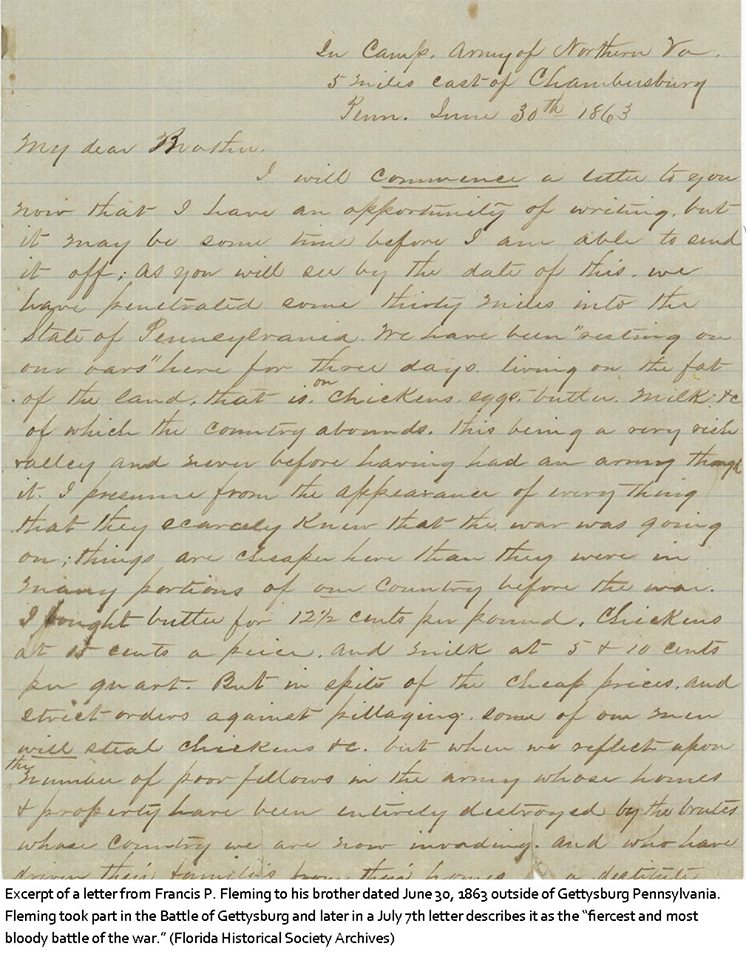 In Camp, Army of Northern Va.
5 miles east of Chambersburg
Penn. June 30th 1863
My dear Brother.
I will commence a letter to you
now that I have an opportunity of writing, but
it may be some time before I am able to send
it off; as you will see by the date of this. we
have penetrated some thirty miles into the
State of Pennsylvania. We have been "resting on
our oars" here for three days. living on the fat
of the land, that is, on chickens, eggs, butter. Milk &c
of which the country abounds. this being a very rich
valley and never before having had an army through
it. I presume from the appearance of everything
that they scarcely knew that the war was going
on; things are cheaper here than they were in
many portions of our country before the war.
I bought butter for 12½ cents per pound, Chickens
at 15 cents a piece. and milk at 5 & 10 cents
per quart. But in spite of the cheap prices, and
strict orders against pillaging. some of our men
will steal chickens &c. but when we reflect upon
the number of poor fellows in the army whose homes
& property have been entirely destroyed by the brutes
whose country we are now invading. and who have
driven their families from their homes a destitute
Excerpt of a letter from Francis P. Fleming to his brother dated June 30, 1863 outside of Gettysburg Pennsylvania.
Fleming took part in the Battle of Gettysburg and later in a July 7th letter describes it as the "fiercest and most
bloody battle of the war." (Florida Historical Society Archives)